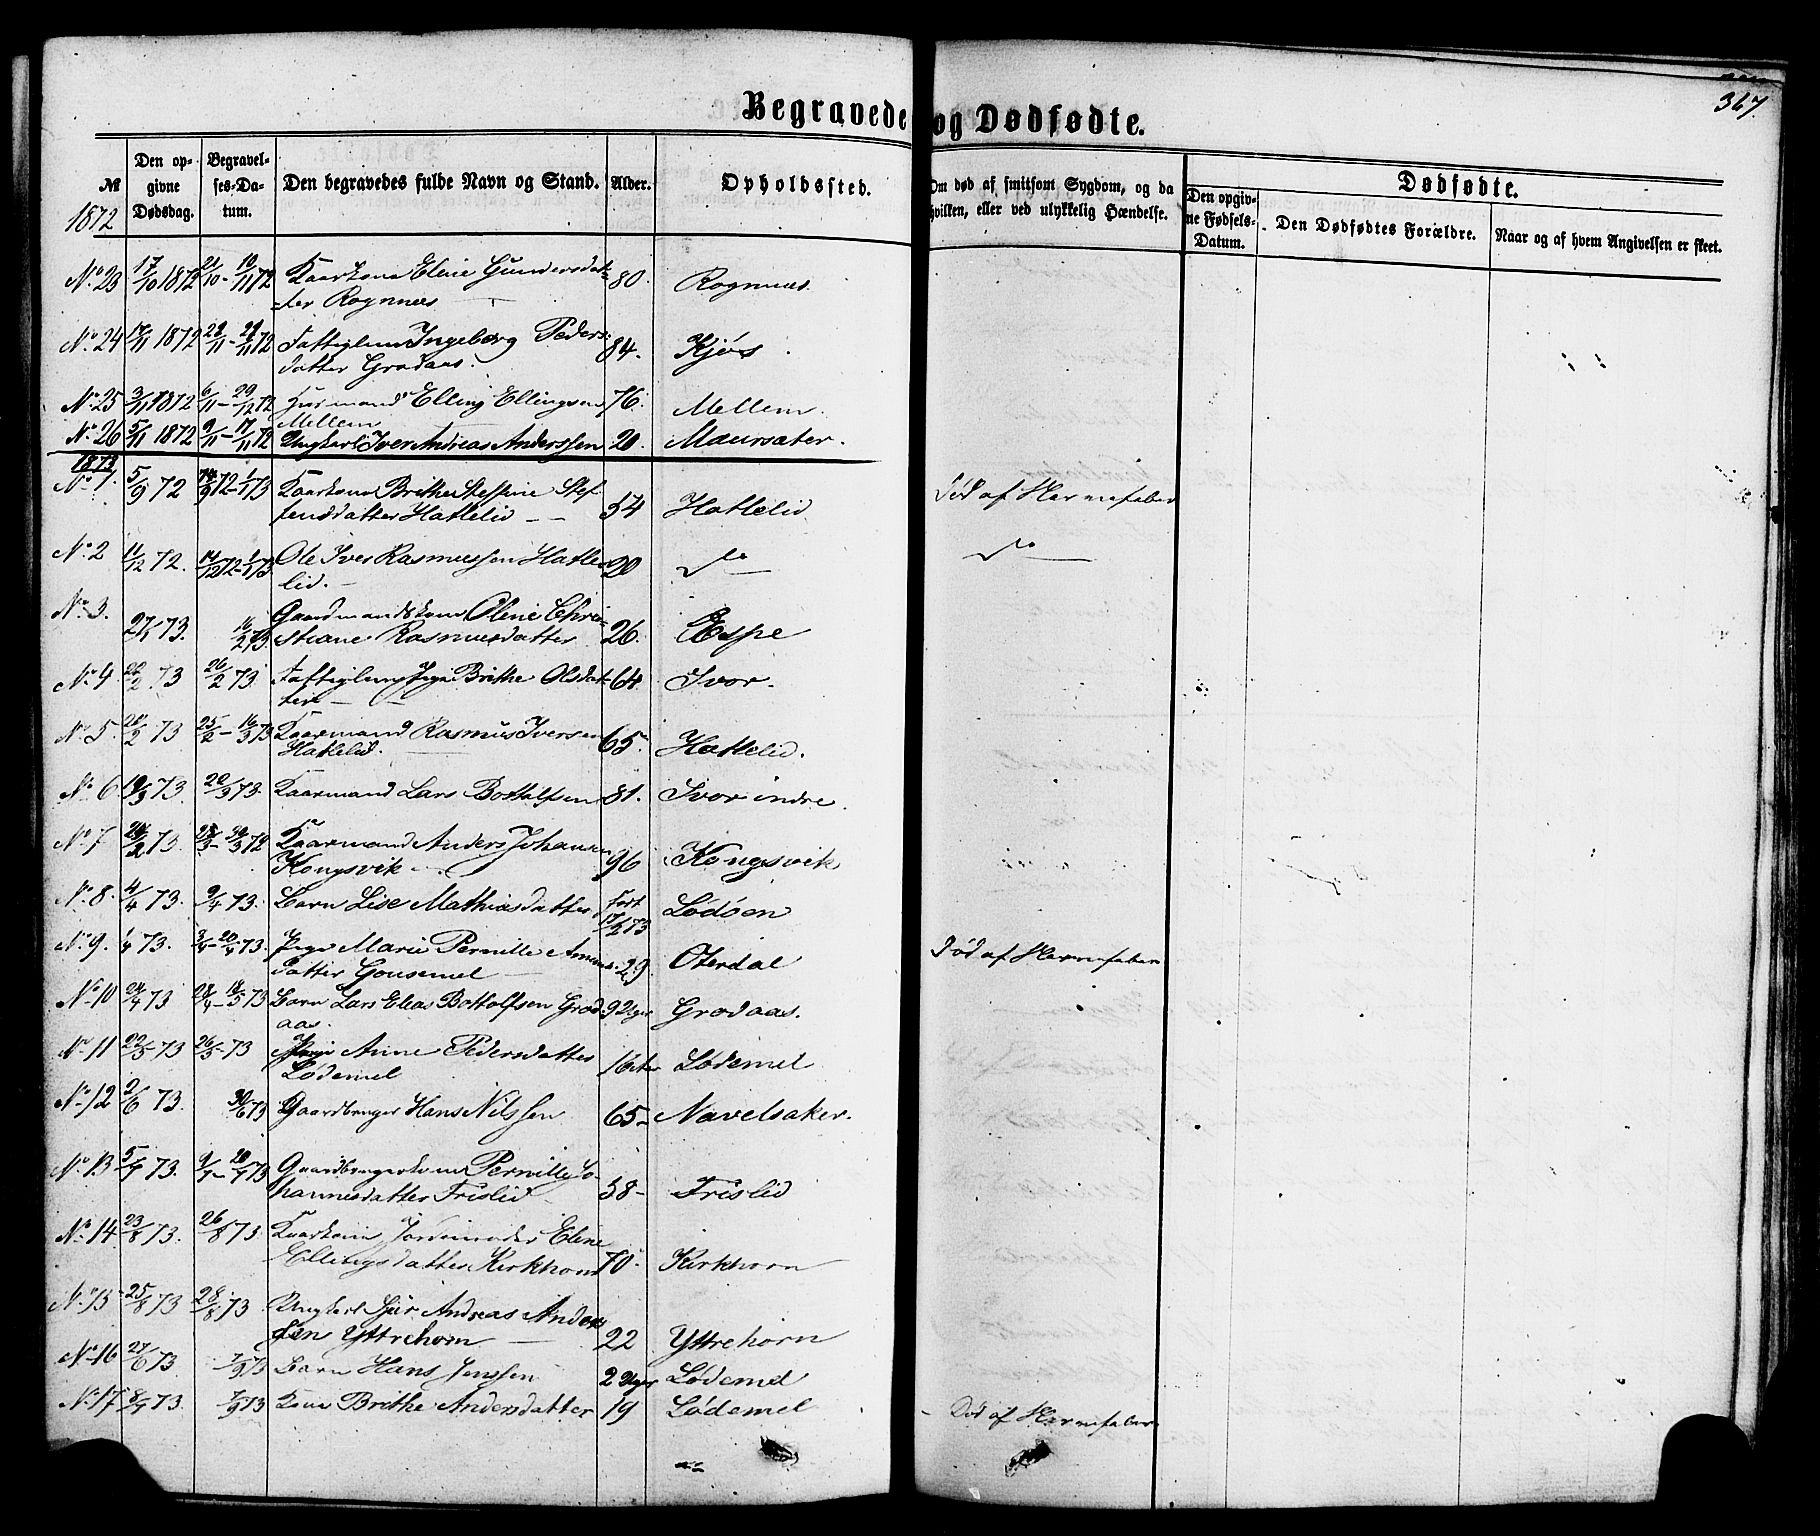 Begravede og Dødfødte.
367.
№
Den opgivne Dødsdag.
Begravelses-Datum.
Den begravedes fulde Navn og Stand.
Alder.
Opholdssted.
Om død af smitsom Sygdom, og da hvilken, eller ved ulykkelig Hændelse.
Dødfødte.
Den opgivne Fødsels-Datum.
Den Dødfødtes Forældre.
Naar og af hvem Angivelsen er skeet.
1872
No 23 17/10 1872 21/10 - 10/11 72 Kaarkone Elene Gundersdat- 80. Rognnæs.
ter Rognnæs
No 24 17/11 1872 Ingeborg Peders- 84. Kjøs
datter Grodaas.
No 25 3/11 1872 6/11 - 29/12 72 Husmand Elling Ellingsen 76. Mellem.
Mellem
No 26 5/11 1872 9/11 - 17/11 72 Ungkarl Iver Andreas Anderssen 20. Maursæter.
1873
No 1. 5/9 72 1/1 73 Kaarkone Brithe Steffine Stef- 54 Hatlelid Død af Harnefeber
fensdatter Hatlelid
No 2 11/12 72. 14/12 72 - 1/1 73 Ole Iver Rasmussen Hatle- 20 do do
lid.
No 3. 27/1 73. 16/2 73. Gaardmandskone Olene Chri-
stiane Rasmusdatter 26. Espe
No 4 22/2 73 26/2 73. Brithe Olsdat- 64 Ivor.
ter
No 5. 20/2 73 25/2 - 16/3 73 Kaarmand Rasmus Iversen 65. Hatlelid.
Hatlelid.
No 6 19/3 73. 22/3 73. Kaarmand Lars Bottolfsen 81. Ivor indre.
No 7 73. 30/3 72 Kaarmand Anders Johansen
Kongsvik 96 Kongsvik
No 8. 4/4 73. 9/4 73. Barn Lise Mathiasdatter Født 17/2 73 Lødøen
No 9. 1/4 73. 3/4 - 20/4 73. Pige Marie Pernille 29. Oterdal Død af Harnefeber
datter Gousemel
No 10 24/4 73 28/4 - 18/5 73 Barn Lars Elias Bottolfsen Grod- 9 Uger Grodaas.
aas.
No 11 22/5 73 26/5 - 73 Pige Anne Pedersdatter 16 Lødemel
Lødemel
No 12 2/6 73. 30/6 73 Gaardbruger Hans Nilssen 65 - Navelsaker.
No 13 5/7 73. 9/7 - 20/7 73 Gaardbrugerkone Pernille Jo- 58 - Frislid
hannesdatter Frislid
No 14 23/8 73. 26/8 73. Kaarkone Jordemoder Elene
Ellingsdatter Kirkhorn 70. Kirkhorn
No 15 25/8 73 28/8 73 Ungkarl Sjur Andreas Anders-
sen Yttrehorn 22 Yttrehorn
No 16 27/6 73 7/9 73 Barn Hans Jenssen 2 Uger Lødemel
No 17 8/7 73. 7/9 73 Kone Brithe Andersdatter 19 Lødemel Død af Harnefeber